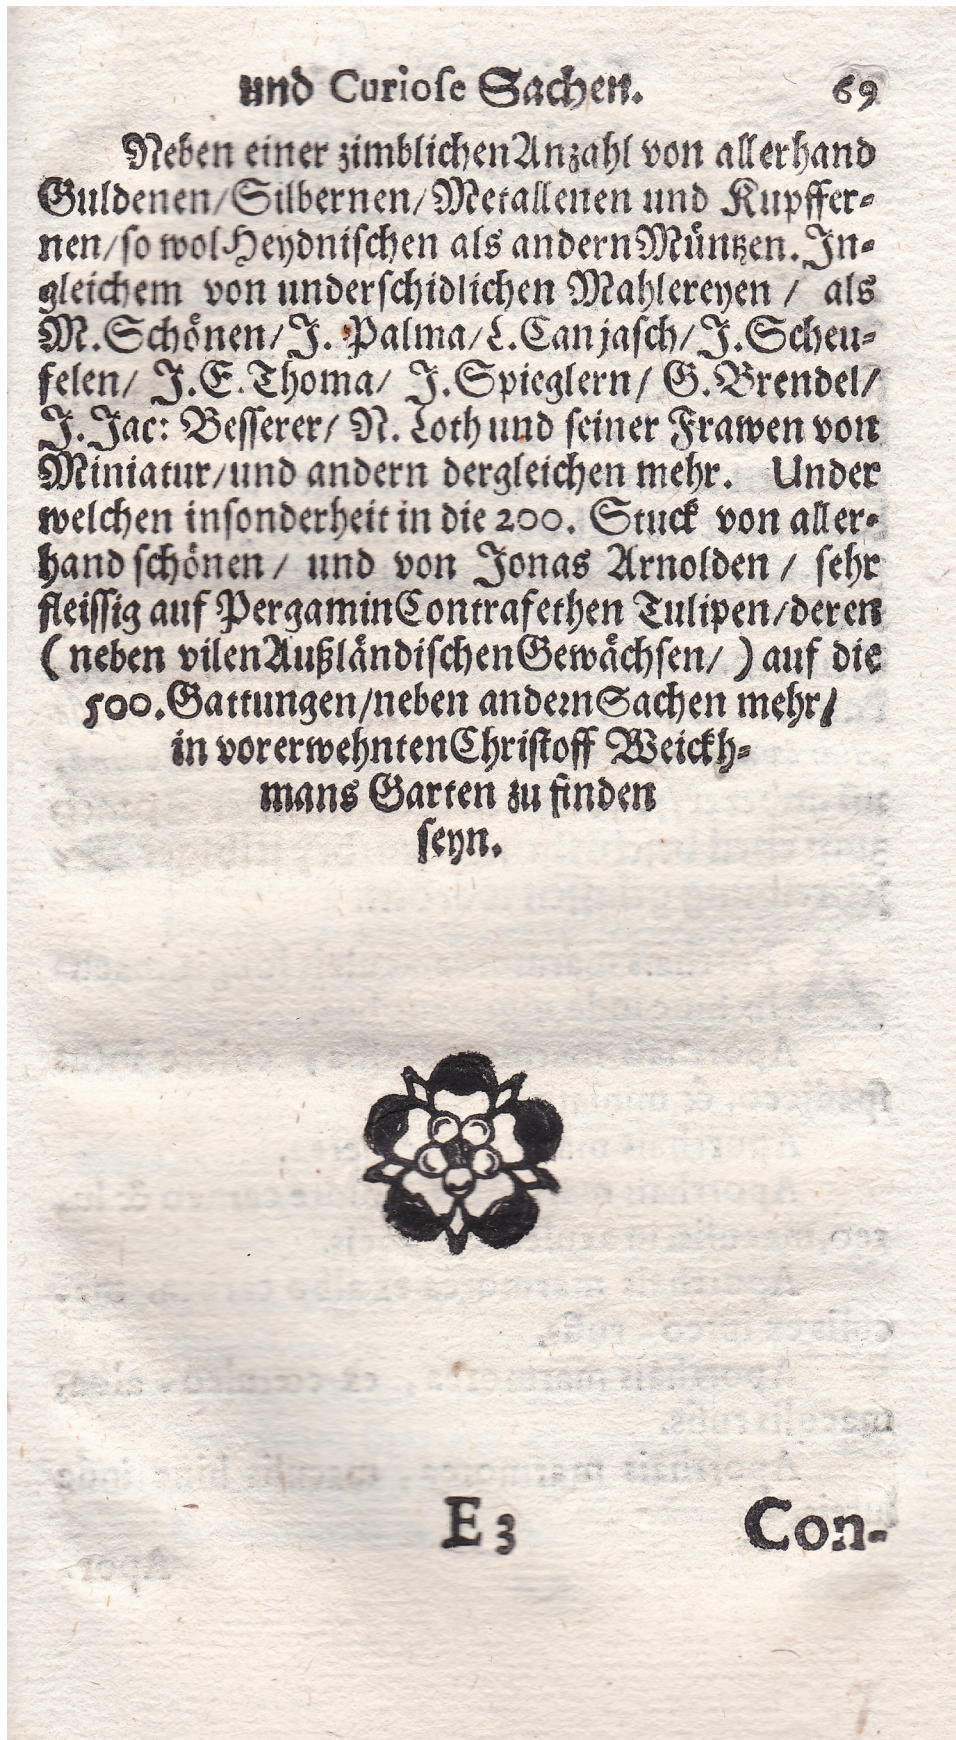 und Curiose Sachen. 69
Neben einer zimblichen Anzahl von allerhand
Guldenen/Silbernen/Metallenen und Kupffer-
nen/so wol Heydnischen als andern Müntzen. In-
gleichem von underschidlichen Mahlereyen / als
M. Schönen/J. Palma/L. Canjasch/J. Scheu-
felen/ J. E. Thoma/ J. Spieglern/ G. Brendel/
J. Jac: Besserer/ N. Loth und seiner Frawen von
Miniatur/und andern dergleichen mehr. Under
welchen insonderheit in die 200. Stuck von aller-
hand schönen / und von Jonas Arnolden / sehr
fleissig auf Pergamin Contrafethen Tulipen/deren
( neben vilen Außländischen Gewächsen/ ) auf die
500. Gattungen/neben andern Sachen mehr/
in vorerwehnten Christoff Weickh-
mans Garten zu finden
seyn.
E 3 Con-